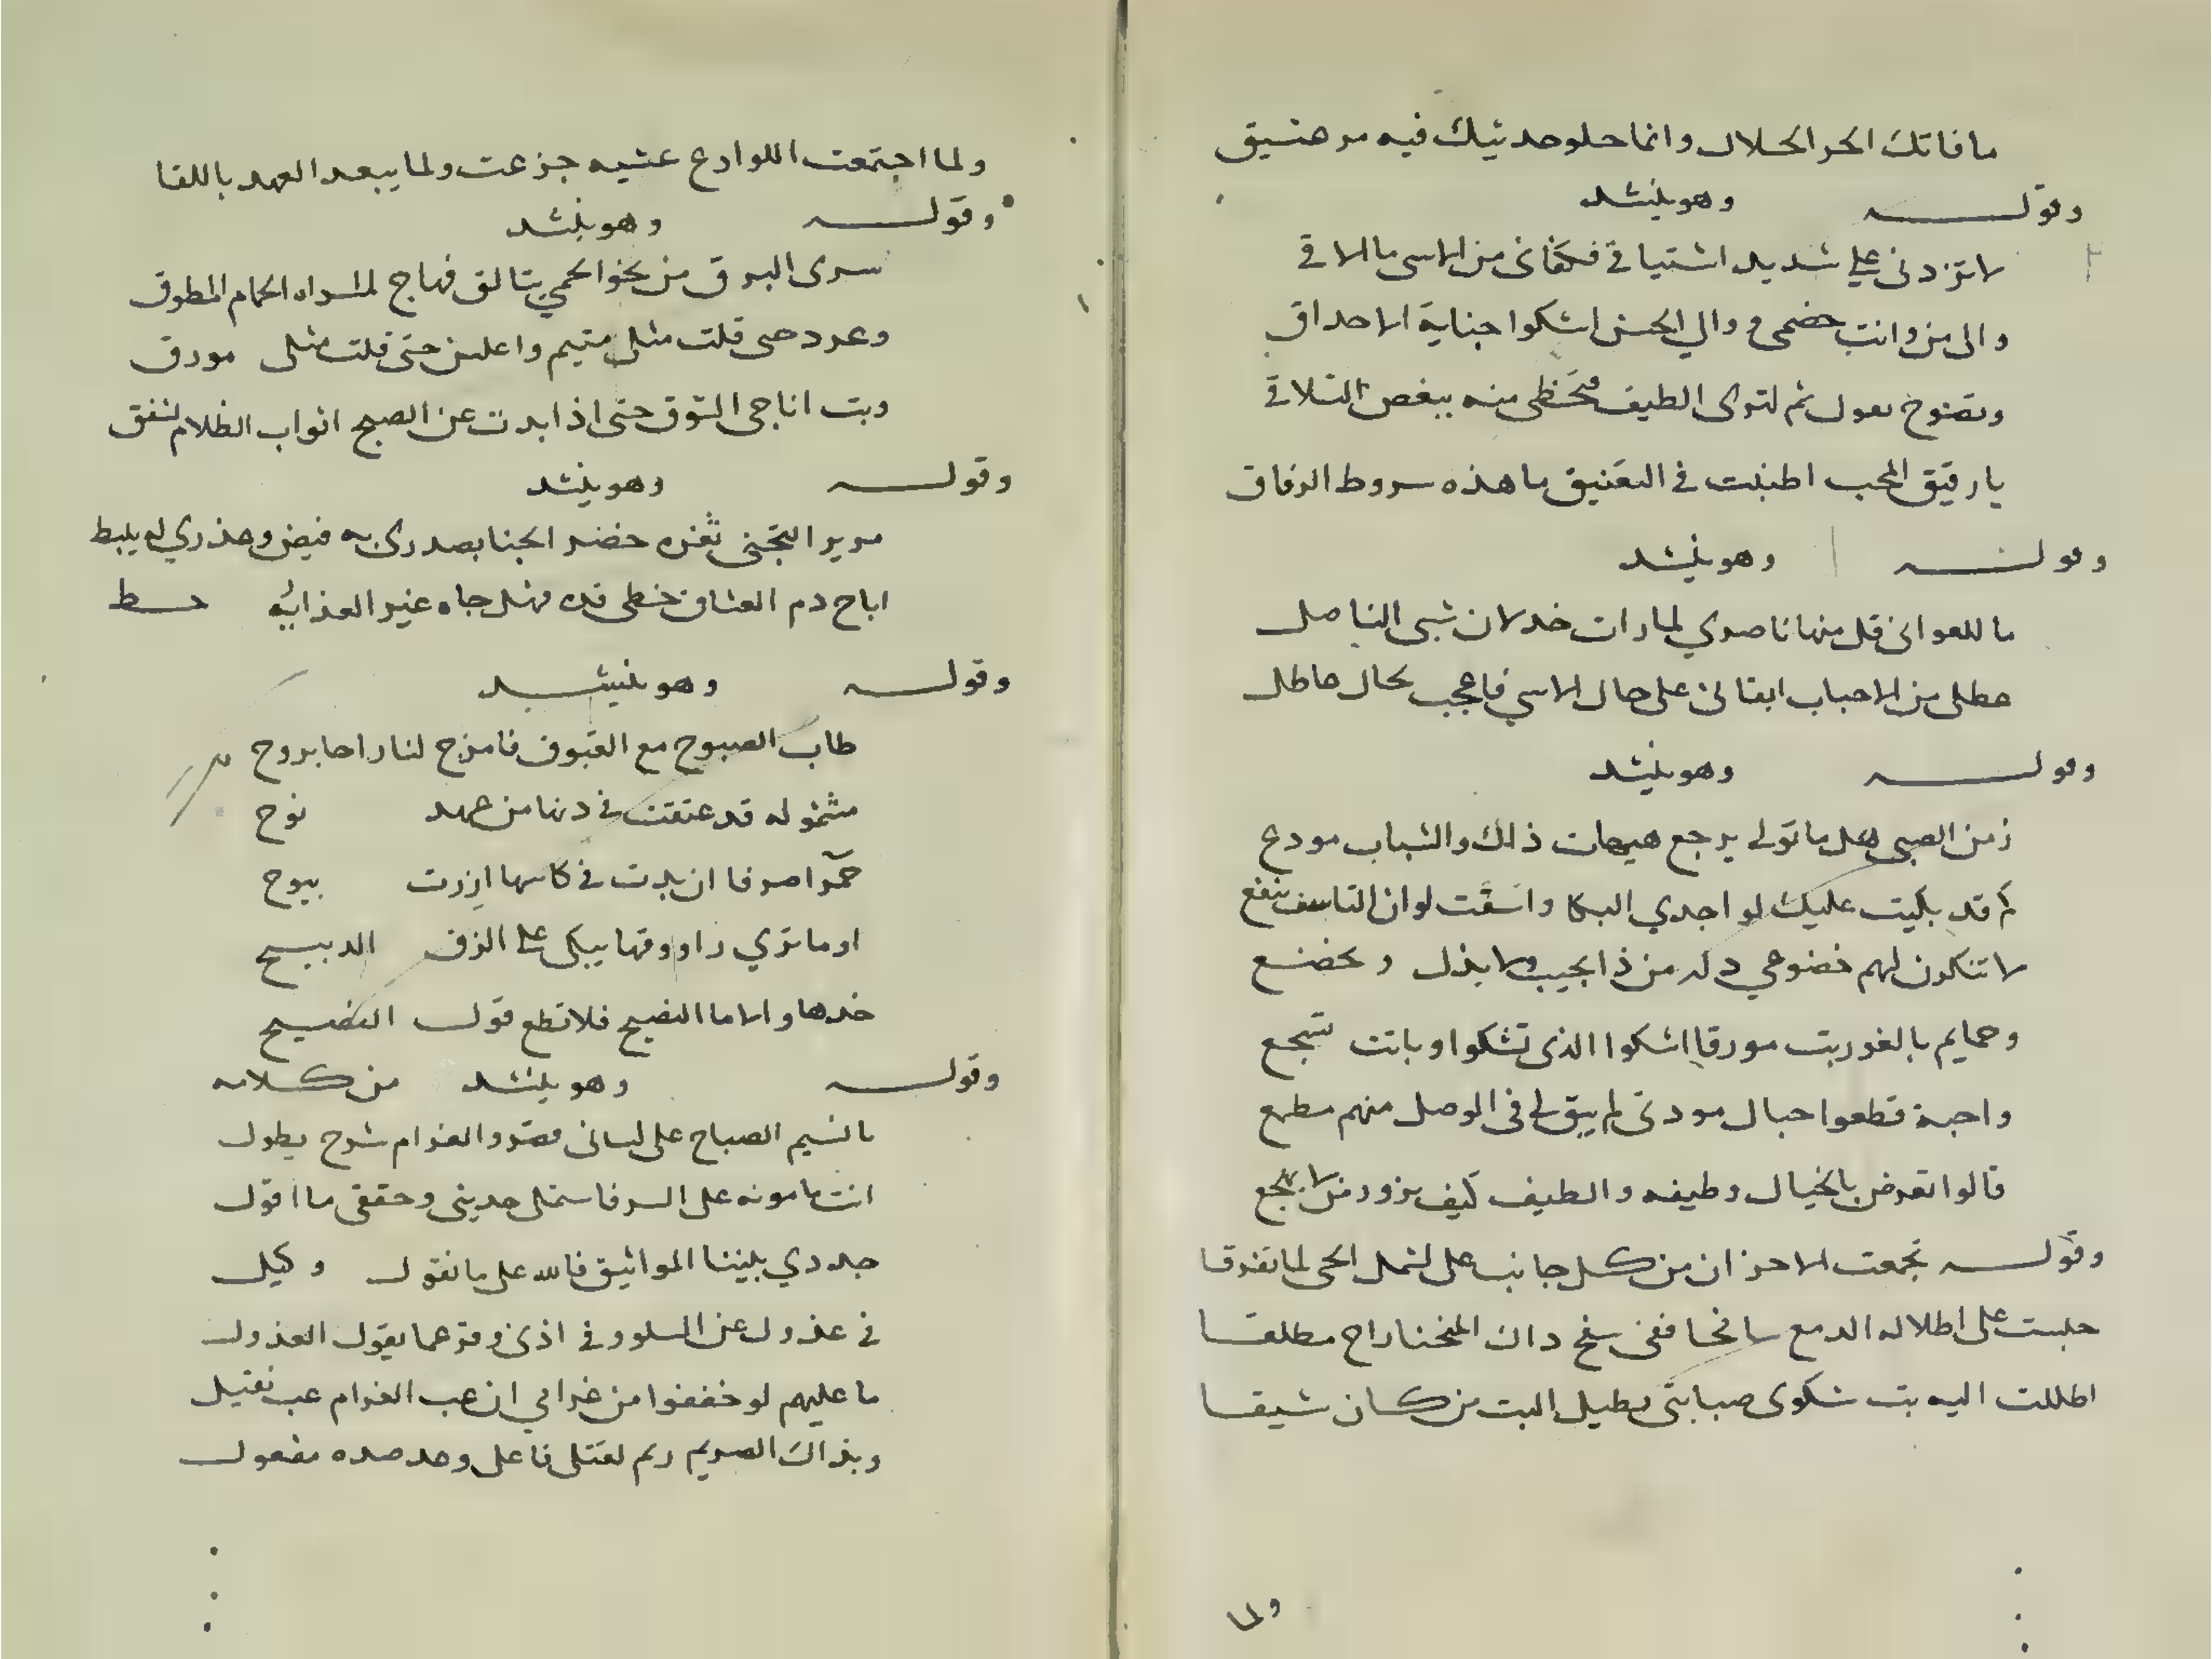 ما فاتك الحر الحلال وانما حلو حديثك فيه مر هتيق
وقوله وهو ينشد
لا تزدنى على شديد اشتياقي فكفانى من الاسى ما الاقي
والى من وانت خصمى والي الحسن اشكوا جناية الاحداق
ثم لتوى الطيف فحظى منه ببغض التلاقي
يا رفيق المحب اطنبت في التعنيق ما هذه سروط الرفاق
وقوله وهو ينشد
ما للغوانى قل منها ناصري لما رات خدلان شبى الناصل
عطلى من الاحباب ابقانى على حال الاسي فاعجب بحال عاطل
وقوله وهو ينشد
زمن الصبى هل ما تولى يرجع هيهات ذلك والشباب مودع
كم قد بكيت عليك لو اجدي البكا واسفت لو ان التاسف ينفع
لا تنكرون لهم خضوعي دله من ذا يحب ولا يذل ويخضع
وحمايم بالغور بت مورقا اشكوا الذى تشكوا وباتت تسجع
واحبة قطعوا حبال مودتى لم يبق لى في الوصل منهم مطمع
قالوا تعرض بالخيال وطيفه والطيف كيف يزور من لا يهجع
وقوله تجمعت الاحزان من كل جانب على لشمل الحى لما تفرقا
حلبت على اطلاله الدمع سانحا ففى سفح دان المنحنا راح مطلقا
اطللت اليه بت شكوى صبابتى يطيل البت من كان شيقا
ولما
ولما اجتمعت اللوادع عشيه جزعت ولما يبعد العهد باللقا
وقوله وهو ينشد
سرى البرق من نحو الحمي يتالق فهاج لمسراه الحمام المطوق
وغرد حتى قلت مثلى متيم واعلن حتى قلت مثلى مورق
وبت اناجى الشوق حتى اذا بدت عن الصبح اثواب الظلام تشقق
وقوله وهو ينشد
مرير التجنى ثغره خضر الجنا بصدرى به فيض وعذري له يلبط
اباح دم العشاق خطى قده مثل جاه غير العذابه حسط
وقوله وهو ينشد
طاب الصبوح مع الغبوق فامزج لنا راحا بروح
مشموله قد عتقت في دنها من عهد نوح
حمرا صرفا ان بدت في كاسها ازرت بيوح
او ما تري راووقها يبكى على الزق الدبيح
خدها والاما النصيح فلا تطع قول النصيح
وقوله وهو ينشد من كلامه
يا نسيم الصباح على لسانى قصر والغرام شرح يطول
انت مامونه على السر فاستمل حديثى وحققى ما اقول
جددي بيننا المواثيق فالله على ما نقول وكيل
في عذول عن السلو وفي اذنى وقر عما يقول العذول
ما عليهم لو خففوا من غرامي ان عب الغرام عب ثقيل
وبذاك الصريم ريم لقتلى فاعل وعد صده مفعول